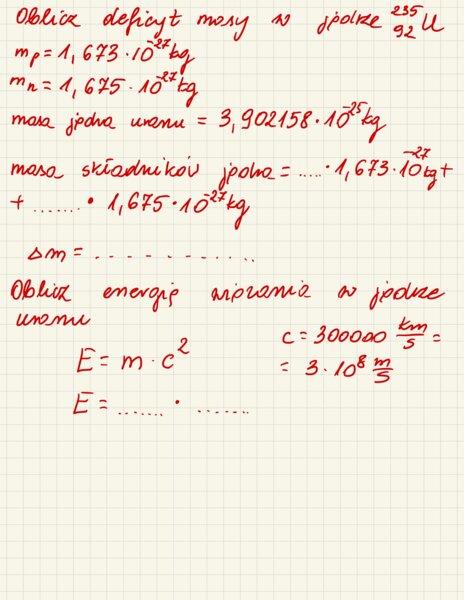 Oblicz deficyt masy w jądrze ²³⁵₉₂U
mp = 1,673 · 10⁻²⁷ kg
mn = 1,675 · 10⁻²⁷ kg
masa jądra uranu = 3,902158 · 10⁻²⁵ kg
masa składników jądra = ..... · 1,673 · 10⁻²⁷ kg +
+ ....... · 1,675 · 10⁻²⁷ kg
Δm = - . - - - - . . . . ..
Oblicz energię wiązania w jądrze
uranu
c = 300000 km/s =
= 3 · 10⁸ m/s
E = m · c²
E = ....... · .......